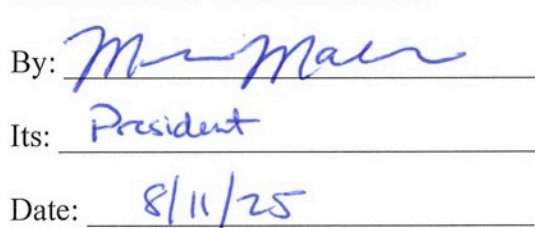 By:
Its: President
Date: 8/11/25